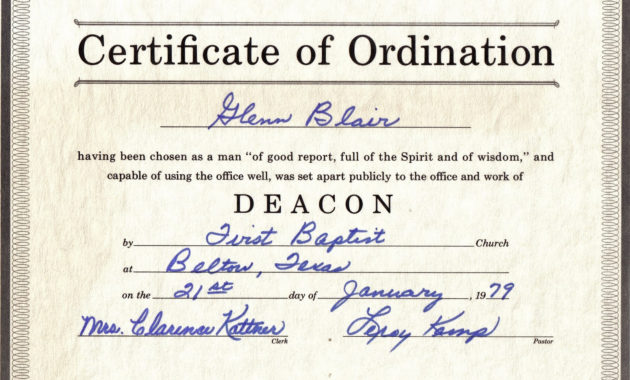 Certificate of Ordination
Glenn Blair
having been chosen as a man “of good report, full of the Spirit and of wisdom,” and
capable of using the office well, was set apart publicly to the office and work of
DEACON
by First Baptist Church
at Belton, Texas
on the 21st day of January, 1979
Mrs. Clarence Kattner Leroy Kemp
Clerk Pastor